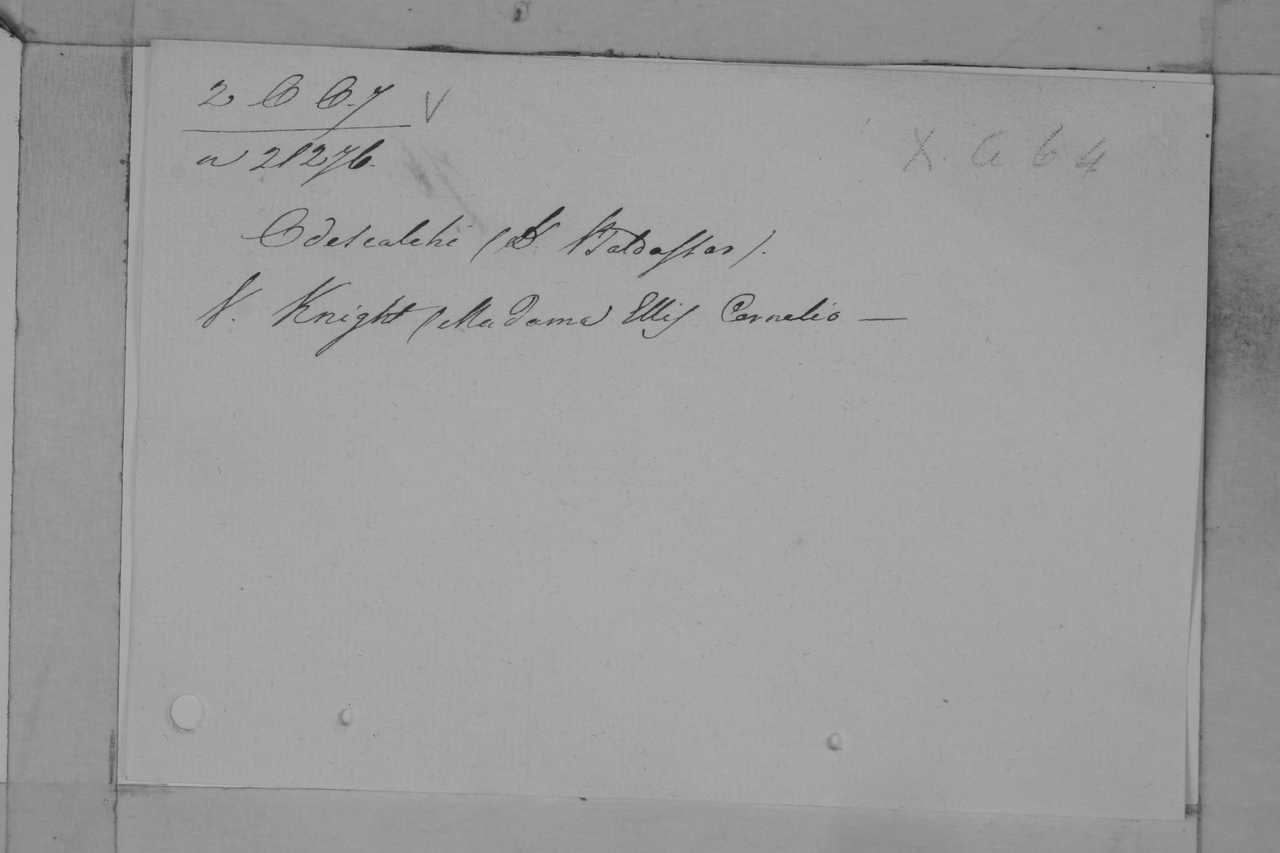 2 O O. 7 V
a 21276.
X. G 64
Odescalchi (D. Baldassar).
V. Knight (Madama Ellis Cornelia —